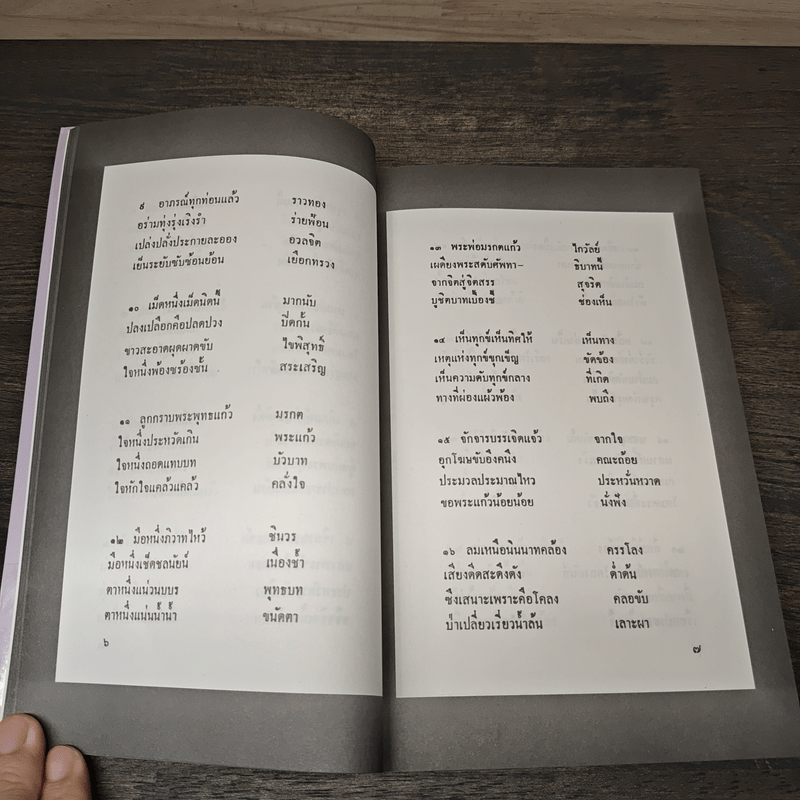 ๙ อาภรณ์ทุกท่อนแล้ว ราวทอง
อร่ามทุ่งรุ่งเริงรำ ร่ายฟ้อน
เปล่งปลั่งประกายละออง อวลจิต
เย็นระยับซับซ้อนย้อน เยือกทรวง
๑๐ เม็ดหนึ่งเม็ดนิดนี้ มากนับ
ปลงเปลือกคือปลดปวง บีดกั้น
ขาวสะอาดผุดผาดขับ ไขพิสุทธิ์
ใจหนึ่งพ้องซร้องชั้น สระเสริญ
๑๑ ลูกกราบพระพุทธแก้ว มรกต
ใจหนึ่งประหวัดเกิน พระแก้ว
ใจหนึ่งถอดแทบบท บัวบาท
ใจหักใจแคล้วแคล้ว คลั่งใจ
๑๒ มือหนึ่งภิวาทไหว้ ชินวร
มือหนึ่งเช็ดชลนัยน์ เนื่องช้ำ
ตาหนึ่งแน่วนบบร พุทธบท
ตาหนึ่งแน่นน้ำน้ำ ขนัดตา
๖
๑๓ พระพ่อมรกตแก้ว ไกวัลย์
เผดียงพระสดับศัพทา- ธิบาทนี้
จากจิตสู่จิตสรร สุจริต
บูชิตบาทเบื้องชี้ ช่องเห็น
๑๔ เห็นทุกข์เห็นทิศให้ เห็นทาง
เหตุแห่งทุกข์ขุกเข็ญ ขัดข้อง
เห็นความดับทุกข์กลาง ที่เกิด
ทางที่ผ่องแผ้วพ้อง พบถึง
๑๕ จักจารบรรเจิดแจ้ว จากใจ
อุกโฆษขับอึงคนึง คณะถ้อย
ประมวลประมาณไหว ประหวั่นหวาด
ขอพระแก้วน้อยน้อย นั่งฟัง
๑๖ ลมเหนือนินนาทคล้อง ครรโลง
เสียงดีดสะดึงดัง ด่ำด้น
ซึงเสนาะเพราะคือโคลง คลอขับ
ป่าเปลี่ยวเรี่ยวน้ำล้น เลาะผา
๗